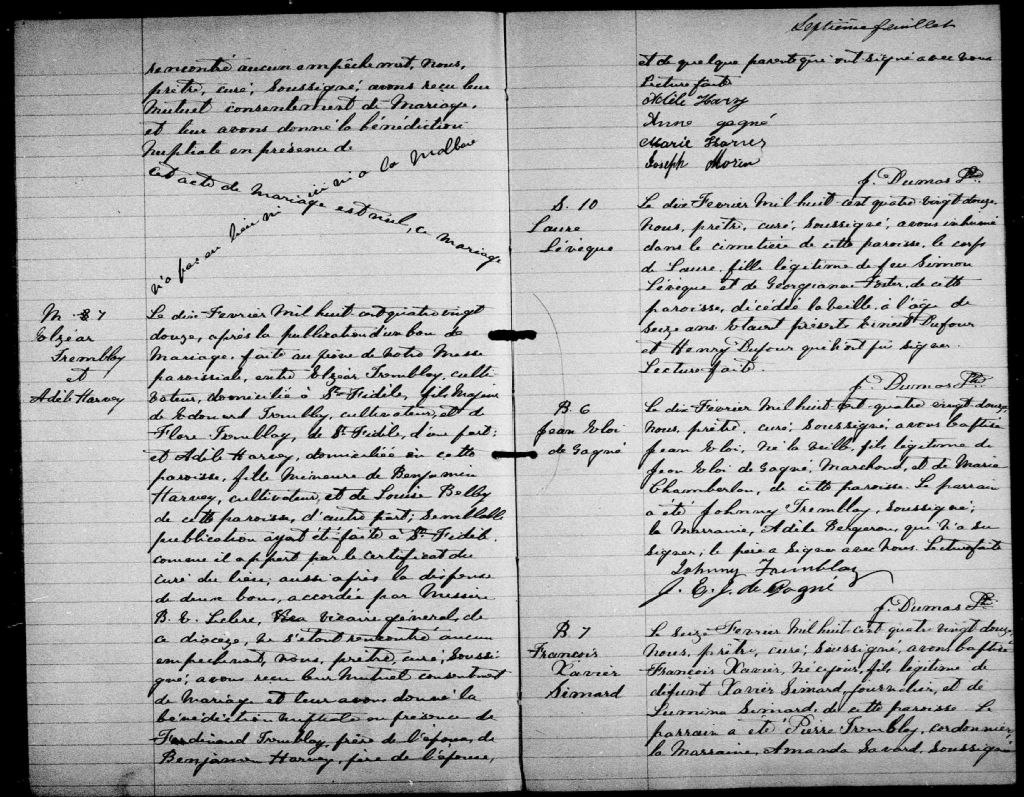 rencontré aucun empêchement, Nous,
prêtre, curé, soussigné, avons reçu leur
Mutuel consentement de Mariage,
et leur avons donné la bénédiction
Nuptiale en présence de
Cet acte de mariage est nul, ce mariage
n'a pas eu lieu ni ici ni à la Malbaie
M. 7
Elzéar
Tremblay
et
Adèle Harvey
Le dix Fevrier Mil huit cent quatre vingt
douze, après la publication d'un ban de
Mariage, faite au prône de Notre Messe
paroissiale, entre Elzéar Tremblay, culti
vateur, domicilié à St Fidèle, fils Majeur
de Edouard Tremblay, cultivateur, et de
Flore Tremblay, de St Fidèle, d'une part;
et Adèle Harvey, domiciliée en cette
paroisse, fille Mineure de Benjamin
Harvey, cultivateur, et de Louise Belley
de cette paroisse, d'autre part; semblable
publication ayant été faite à St Fidèle
comme il appert par le certificat du
curé du lieu; aussi après la dispense
de deux bans, accordée par Messire
B. E. Leclerc, vicaire général, de
ce diocèze, ne s'étant rencontré aucun
empêchement, nous, prêtre, curé, soussi
gné, avons reçu leur Mutuel consentement
de Mariage et leur avons donné la
bénédiction nuptiale en présence de
Ferdinand Tremblay, père de l'époux, de
Benjamin Harvey, père de l'épouse,
Septième feuillet
et de quelque parents qui ont signé avec nous
Lecture faite
Adèle Harvy
Anne gagné
Marie Harvey
Joseph Morin
J. Dumas Ptre
S. 10
Laure
Lévèque
Le dix Fevrier Mil huit cent quatre vingt douze,
Nous, prêtre, curé, soussigné, avons inhumé
dans le cimetière de cette paroisse, le corps
de Laure, fille légitime de feu Simon
Lévèque et de Georgianna Foster, de cette
paroisse, décédée la veille, à l'âge de
seize ans. Etaient présents Ernest Dufour
et Henry Dufour qui n'ont pu signer.
Lecture faite.
J. Dumas Ptre
B. 6
Jean Eloi
de Gagné
Le dix Fevrier Mil huit cent quatre vingt douze,
Nous, prêtre, curé, soussigné, avons baptisé
Jean Eloi, né la veille, fils légitime de
Jean Eloi de Gagné, Marchand, et de Marie
Chamberlan, de cette paroisse. Le parrain
a été Johnny Tremblay, soussigné;
la Marraine, Adèle Bergeron, qui n'a su
signer; le père a signé avec Nous. Lecture faite
Johnny Tremblay
J. E. J. de Gagné
J. Dumas Ptre
B 7
François
Xavier
Simard
Le seize Fevrier Mil huit cent quatre vingt douze,
Nous, prêtre, curé, soussigné, avons baptisé
François Xavier, né ce jour, fils légitime de
défunt Xavier Simard, journalier, et de
Simard, de cette paroisse. Le
parrain a été Pierre Tremblay, cordonnier,
la Marraine, Amanda Savard, soussigné